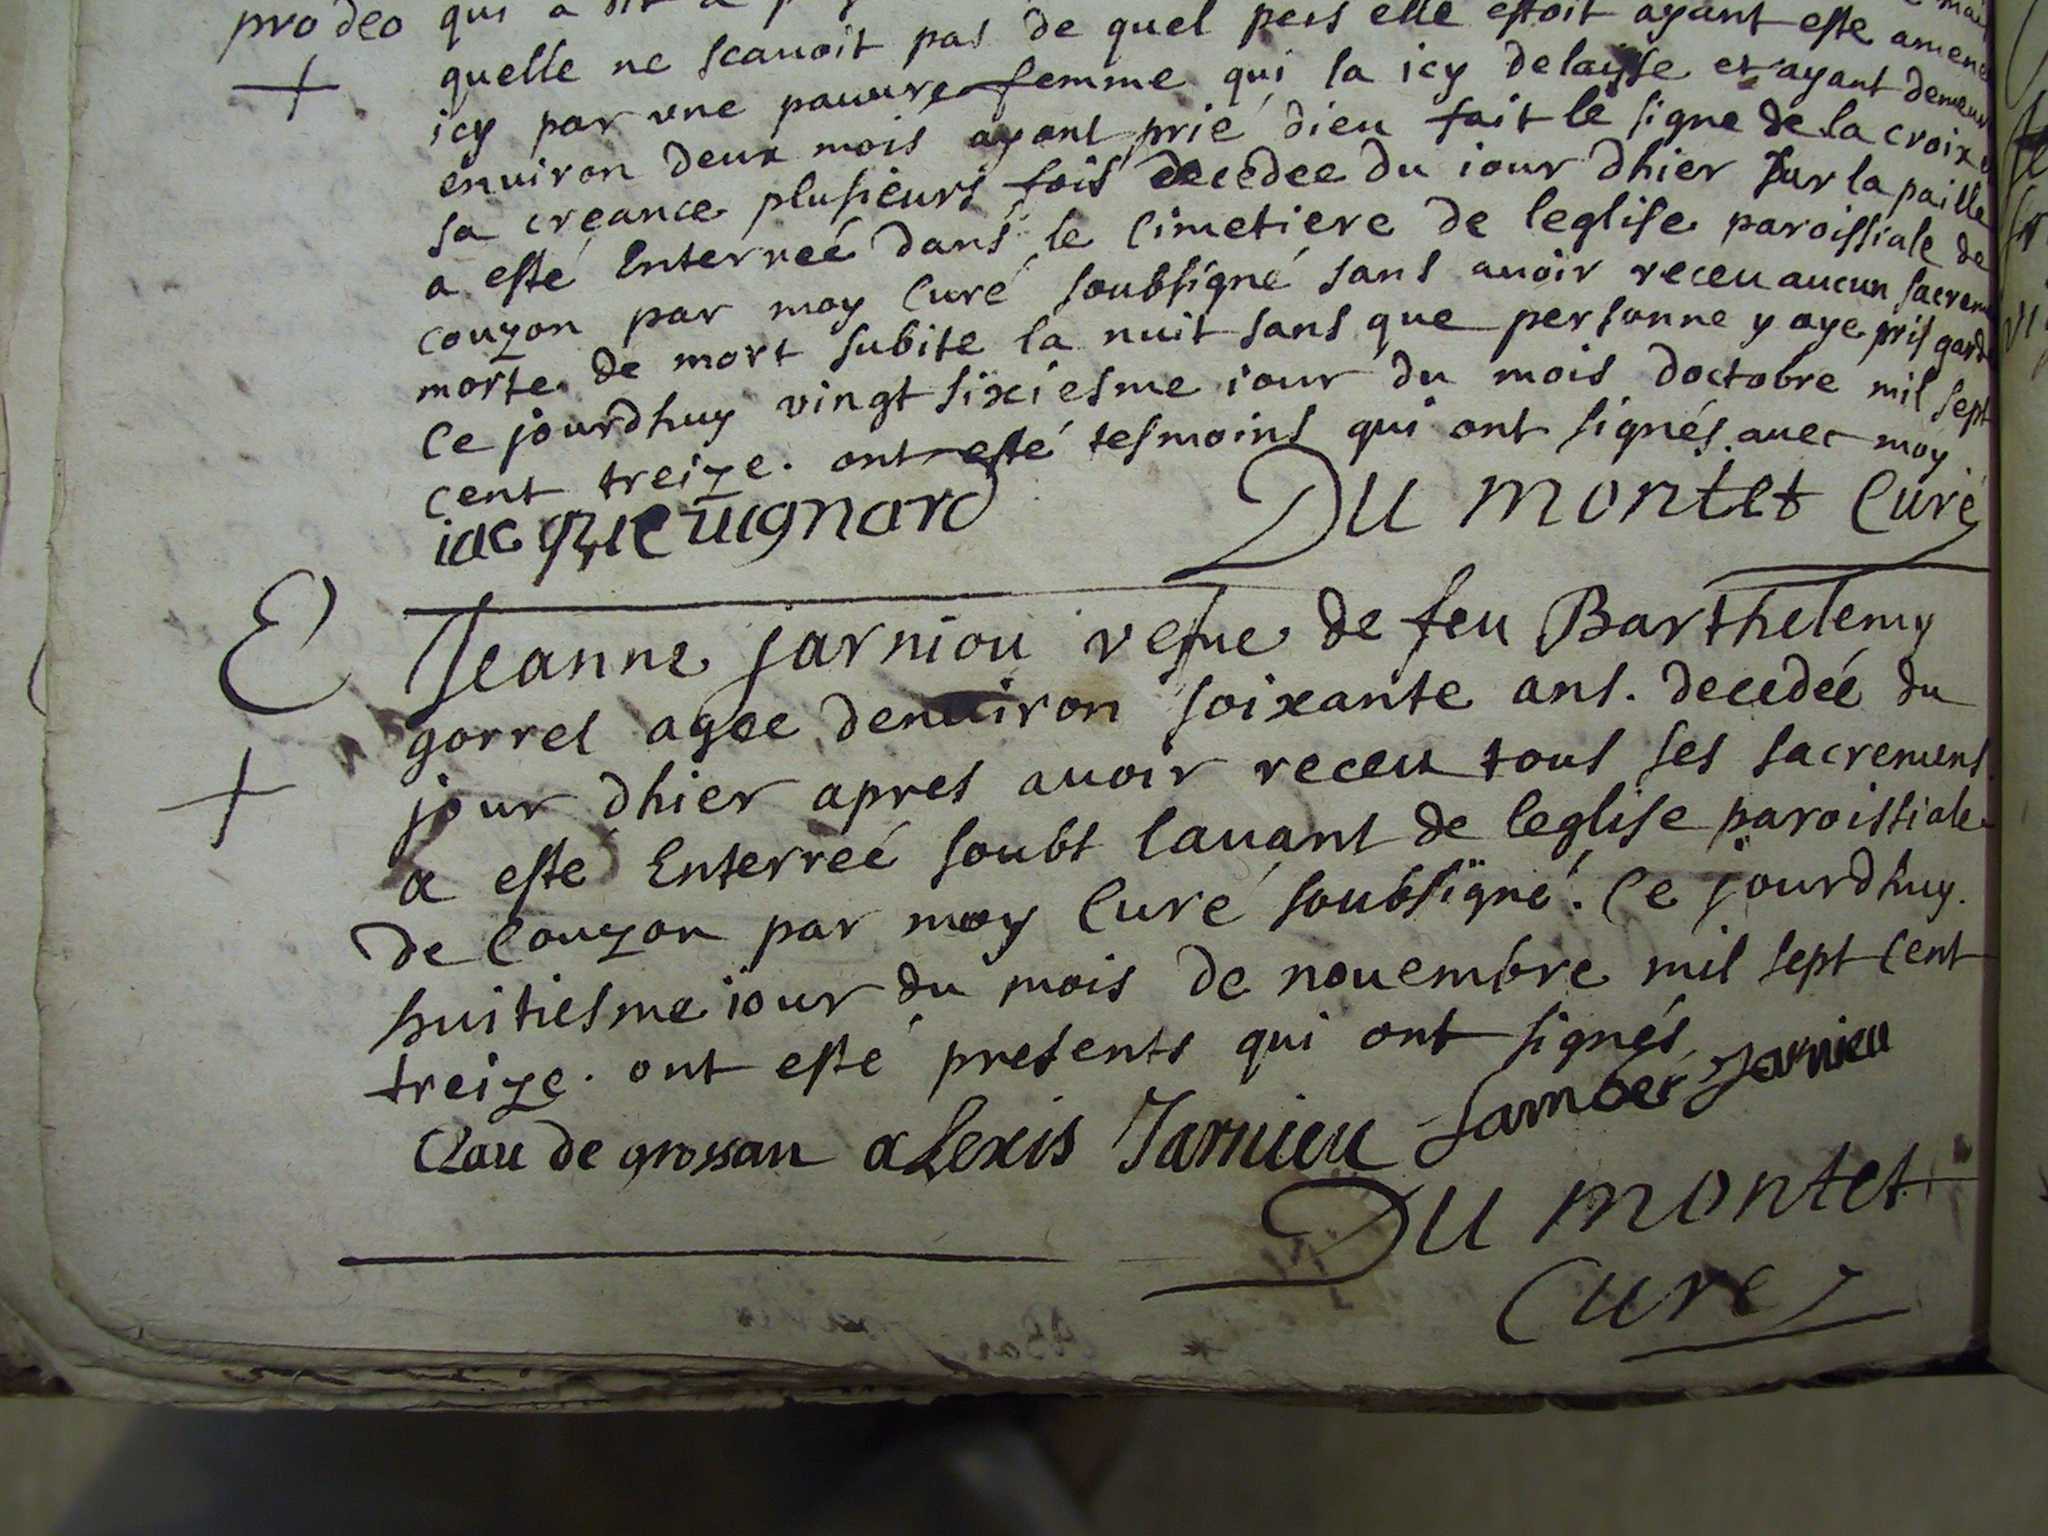 prodeo qui a dit a
quelle ne scauoit pas de quel peis elle estoit ayant este amené
icy par vne pauure femme qui la icy delaysse et ayant demeur
enuiron deux mois ayant prié dieu fait le signe de la croix
sa creance plusieurs fois decedee du iour dhier sur la paille
a esté Enterreé dans le Cimetiere de leglise paroissiale de
couzon par moy Curé soubsigné sans auoir receu aucun sacrem
morte de mort subite la nuit sans que personne y aye pris garde
Ce jourdhuy vingt sixiesme iour du mois doctobre mil sept
cent treize. ont esté tesmoins qui ont signés auec moy.
iacque uignard Du montet Curé
E Jeanne jarniou vefue de feu Barthelemy
+ gorrel agee denuiron soixante ans. decedeé du
jour dhier apres auoir receu tous ses sacremens.
a esté Enterreé soubt lauant de leglise paroissiale
de Couzon par moy Curé soubsigné. Ce jourdhuy.
huitiesme iour du mois de nouembre mil sept Cent
treize. ont esté presents qui ont signés
Claude grossan alexis Jarnieu Jarnieu
Du montet
Curé